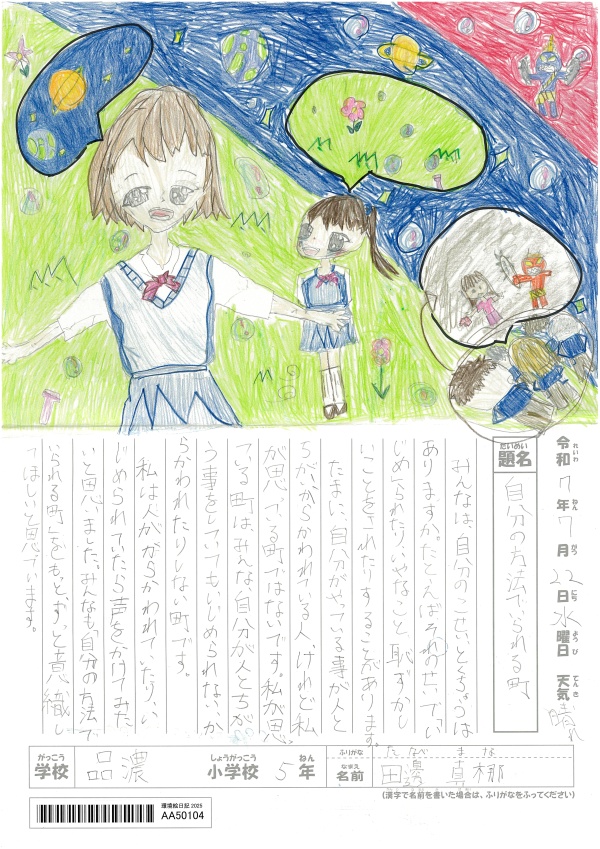 令和7年7月22日水曜日 天気晴れ
れいわ ねん がつ にち ようび てんき
だいめい
題名 自分の方法でいられる町
みんなは、自分のこせい、とくちょうは
ありますか。たとえばそれのせいで「い
じめ」られたり、いやなこと、恥ずかし
いことをされたりすることがあります。
たまに、自分がやっている事が人と
ちがいからかわれている人、けれど私
が思っている町ではないです。私が思
っている町は、みんな、自分が人とちが
う事をしていてもいじめられない、か
らかわれたりしない町です。
私は人がからかわれていたり、い
じめられていたら声をかけてみた
いと思いました。みんなも「自分の方法で
いられる町」をもっと、ずっと意識し
てほしいと思でいます。
がっこう しょうがっこう ねん
学校 品濃 小学校 5年
ふりがな たなべ まな
なまえ
名前 田邉 真梛
(漢字で名前を書いた場合は、ふりがなをふってください)
環境絵日記 2025
AA50104